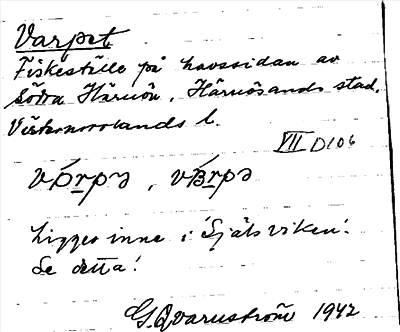 Varpet
Fiskeställe på havssidan av
Södra Härnön, Härnösands stad,
Västernorrlands l.
VII D106
Ligger inne i 'Själsviken'.
Se detta!
G. Qvarnström 1942